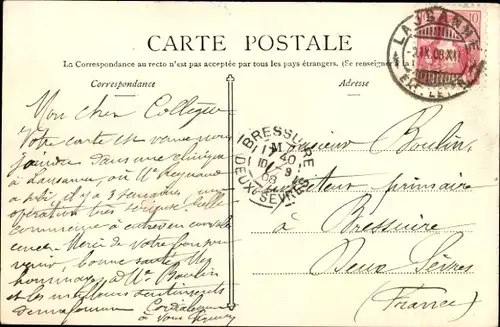 CARTE POSTALE
La Correspondance au recto n'est pas acceptée par tous les pays étrangers. (Se renseigner
Correspondance
Adresse
LAUSANNE
IX.08.XI
EXP. LET.
10
BRESSUIRE
17 40
10 9
08
DEUX-SÈVRES
Mon cher Collègue
Votre carte est venue nous
joindre dans une clinique
à Lausanne, où Me
a subi, il y a 3 semaines, une
opération très sérieuse. Elle
commence à entrer en convales
cence. Merci de votre bon souvenir,
bonne santé, Mes
hommages à Me Boulin
et les meilleurs sentiments
de ma femme. Cordialement
à vous
Monsieur Boulin,
primaire
à Bressuire
Deux Sèvres
(France)